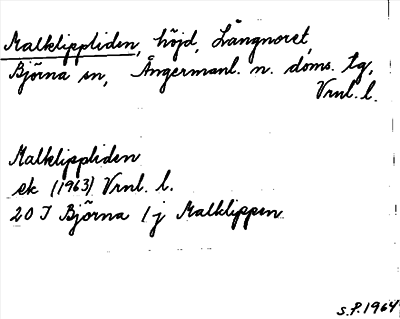 Malklippliden, höjd, Långnoret,
Björna sn, Ångermanl. n. doms. tg,
Vrnl. l.
Malklippliden
ek (1963) Vrnl. l.
20 J Björna 1 j Malklippen
S.P. 1964